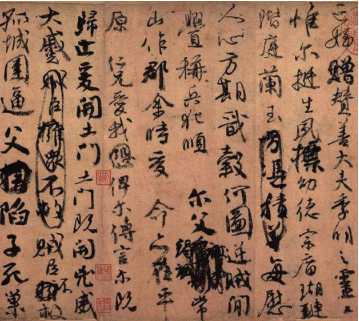 亡姪贈贊善大夫季明之靈
惟爾挺生夙標幼德宗廟瑚璉
階庭蘭玉方憑積善每慰
人心方期戩穀何圖逆賊間
釁稱兵犯順爾父竭誠常
山作郡余時受命亦在平
原仁兄愛我俾爾傳言爾既
歸止爰開土門土門既開兇威
大蹙賊臣擁眾不救賊臣不救
孤城圍逼父陷子死巢